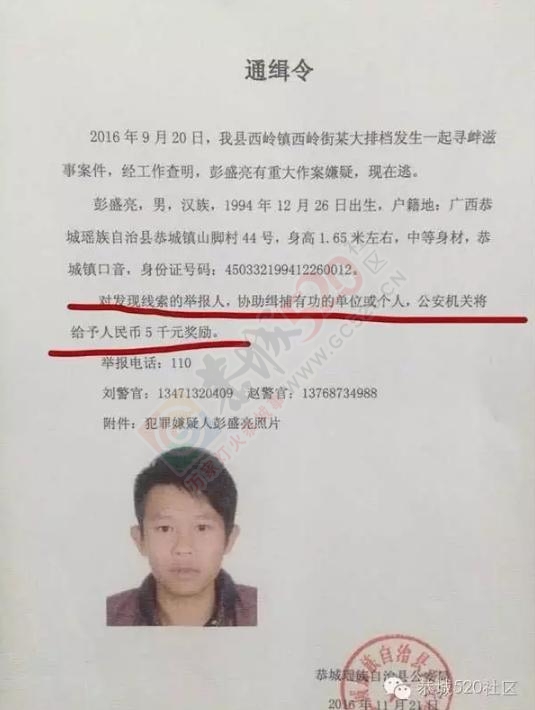 通缉令
2016 年 9 月 20 日，我县西岭镇西岭街某大排档发生一起寻衅滋
事案件，经工作查明，彭盛亮有重大作案嫌疑，现在逃。
彭盛亮，男，汉族，1994 年 12 月 26 日出生，户籍地：广西恭
城瑶族自治县恭城镇山脚村 44 号，身高 1.65 米左右，中等身材，恭
城镇口音，身份证号码：450332199412260012。
对发现线索的举报人，协助缉捕有功的单位或个人，公安机关将
给予人民币 5 千元奖励。
举报电话：110
刘警官：13471320409 赵警官：13768734988
附件：犯罪嫌疑人彭盛亮照片
恭城瑶族自治县公安局
2016 年 11 月 21 日
恭城520社区